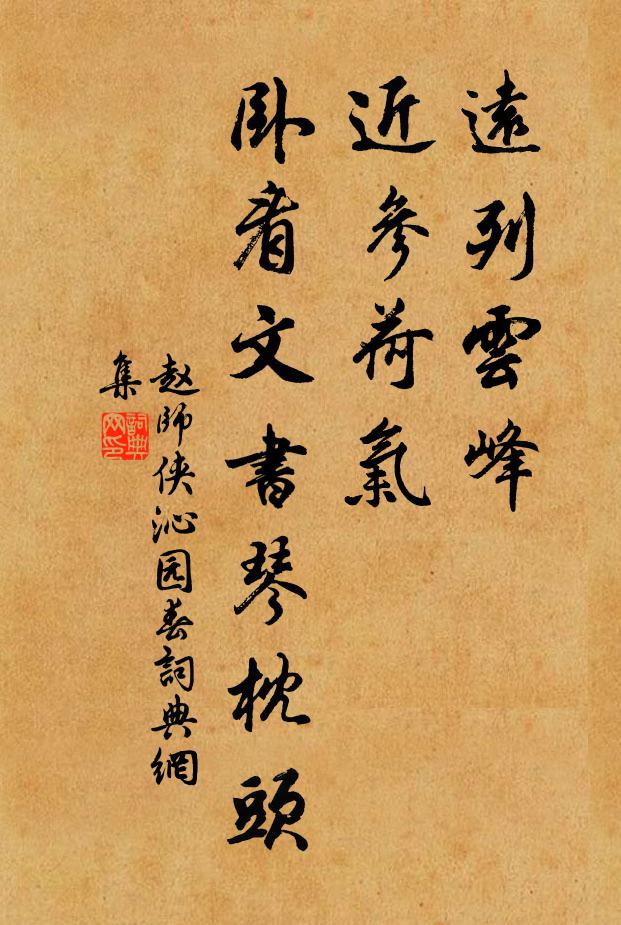 遠列雲峰
近參荷氣
卧看文書琴枕頭
赵師侠沁园春詞典網
集
詞典网印